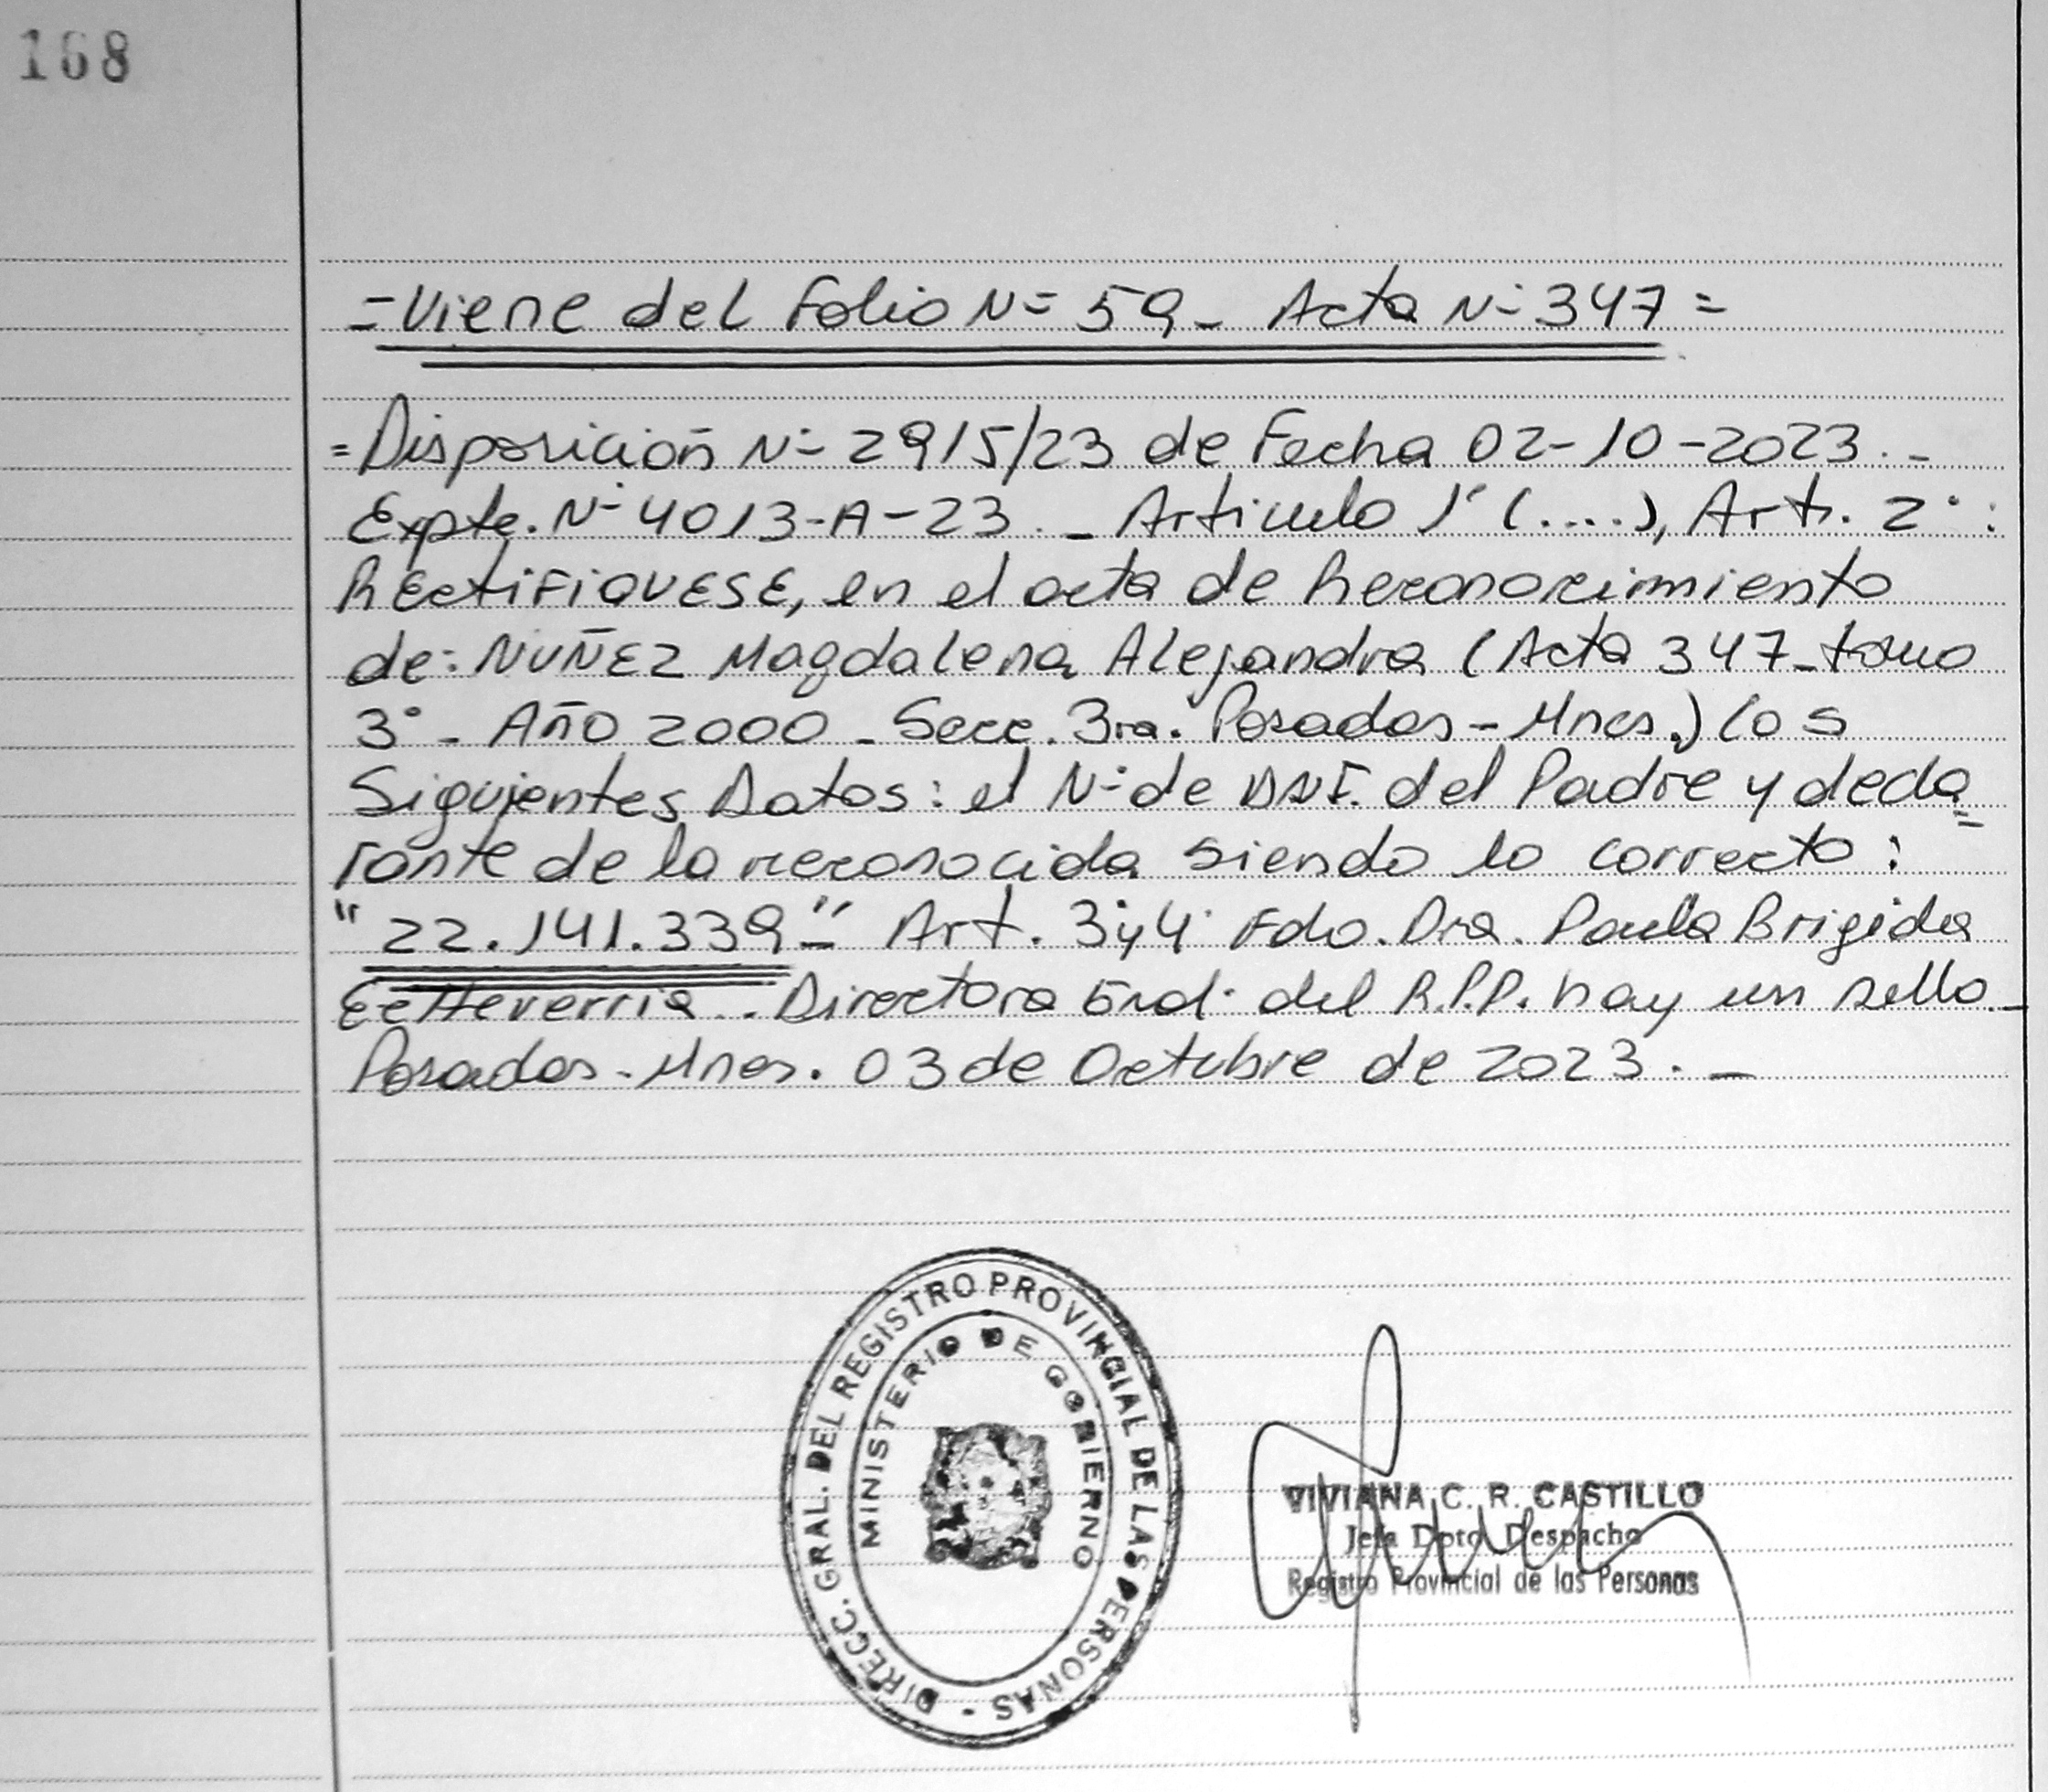 168
=Viene del Folio Nº 59_ Acta Nº 347=
=Disposición Nº 2915/23 de Fecha 02-10-2023._
Expte. Nº 4013-A-23._ Articulo 1º (....), Art. 2º:
RECtiFiQUESE, en el acta de Reconocimiento
de: NUÑEZ Magdalena Alejandra (Acta 347_tomo
3º_ AÑO 2000_Secc. 3ra. Posadas-Mnes.) los
Siguientes Datos: el Nº de DNI. del Padre y decla=
rante de la reconocida siendo lo correcto:
"22.141.339" Art. 3º y 4º Fdo. Dra. Paula Brigida
Ectteverria._ Directora Gral. del R.P.P. hay un sello._
Posadas-Mnes. 03 de Octubre de 2023._
DIRECC. GRAL. DEL REGISTRO PROVINCIAL DE LAS PERSONAS -
MINISTERIO DE GOBIERNO
VIVIANA C. R. CASTILLO
Jefa Dpto. Despacho
Registro Provincial de las Personas